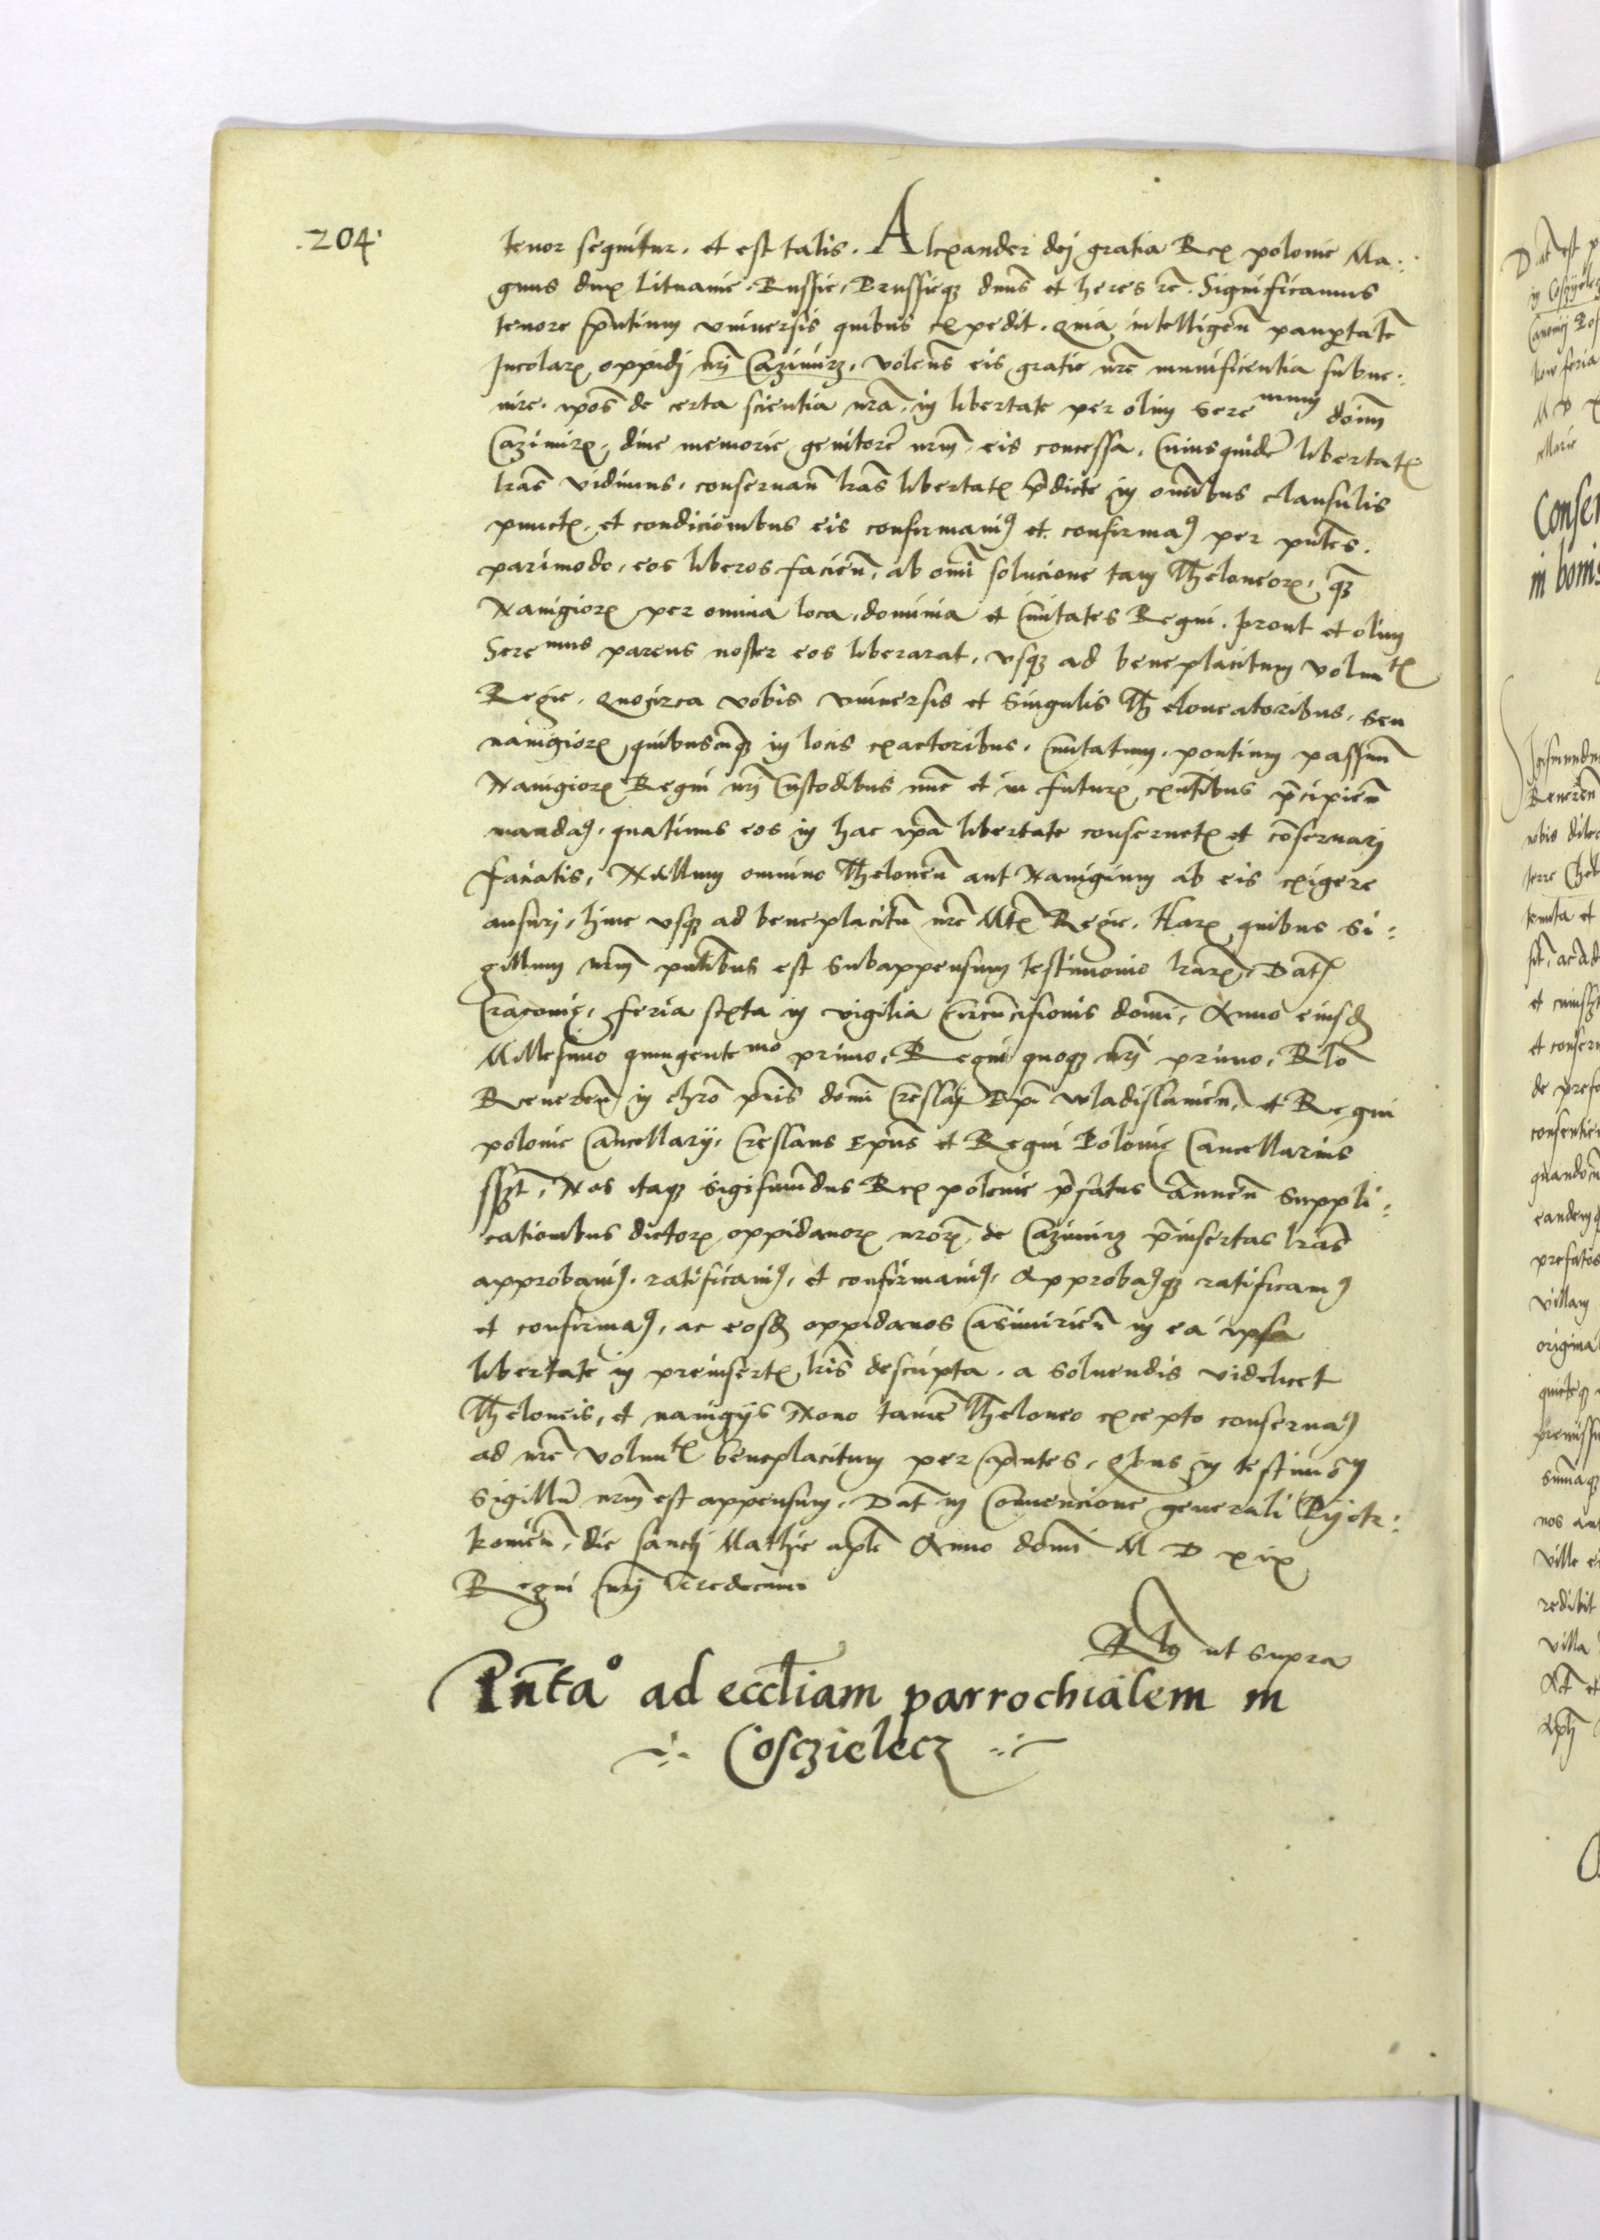 .204.
tenor sequitur. et est talis. Alexander dej gratia Rex polonie Ma..
gnus dux Lituanie. Russie, Prussieqз dn̄us et heres rc̄. Significamus
tenore pn̄tium universis quibus expedit. Quia intelligen̄ paup̄tatē
Incolarꝝ oppidj nr̄j Cazimirz, volens eis gratie nr̄e munificentia subue..
nire. ipos̄ de certa scientia nr̄a. in libertate per olim Serenimum domī
Cazimirꝝ, dive memorie genitorē nrm̄ eis concessa. Cuiusquidē libertatꝭ
lrās vidimus. conservan̄ lrās libertatꝭ p̄dicte in omībus clausulis
punctꝭ. et condicionibus eis confirmaviꝰ et confirmaꝰ per pn̄tes.
parimodo, eos liberos facien̄, ab omī solucione tam Theloneorꝝ. qꝫ
Navigiorꝝ per omnia loca, dominia et Civitates Regni. prout et olim
Serenimus parens noster eos liberarat, usqꝫ ad beneplacitum voluntꝭ
Regie. Quocirca vobis universis et Singulis Theloneatoribus, seu
navigiorꝝ quibuscūqꝫ in locis exactoribus. Civitatum. pontium passuum
Navigiorꝝ Regni nrj̄ Custodibus nūc et in futurꝝ exn̄tibus p̄cipien̄
mandaꝰ. quatinus eos in hac ip̄a libertate conservetꝭ et cōservarj
faciatis, Nullum omnino Theloneū aut Navigium ab eis exigere
ausurj, hinc usqꝫ ad beneplacitū nr̄e Mtꝭ Regie. Harꝝ quibus Si..
gillum nrm̄ pn̄tibus est Subappensum testimonio lrārꝝ. Datꝭ
Cracovie, feria sexta in vigilia Circūcisionis domī. Anno eiusdꝫ
Millesimo quingentemo primo. Regni quoqꝫ nrj̄ primo, Rlō
Reverenꝭ in chrō pr̄is domī Cresslaj Epī Wladislavien̄. et Regni
polonie Cancellarij. Creslaus Epūs et Regni Polonie Cancellarius
sszt. Nos itaqꝫ Sigismūdus Rex polonie p̄fatus Annuen̄ Suppli..
cationibus dictorꝝ oppidanorꝝ nrōrꝝ de Cazimirz p̄insertas lrās
approbaviꝰ. ratificaviꝰ, et confirmaviꝰ, Approbaꝰqꝫ ratificamꝰ
et confirmaꝰ, ac eosdꝫ oppidanos Casimirien̄ in ea ipsa
libertate in preinsertꝭ lrīs descripta. a Solvendis videlicet
Theloneis, et navigijs Novo tamē Theloneo excepto conservaꝰ
ad nr̄e voluntꝭ beneplacitum per pn̄tes, Qbus in testimōm
Sigillū nrm̄ est appensum. Dat̄ in Convencione generali Pijotr..
kovien̄, die Sanctj Mathie apl̄e Anno domī M D xix
Regni nrj̄ Tredecimo
Rlō ut supra
Pn̄tao ad eccl̄iam parrochialem in
Cosczielecz